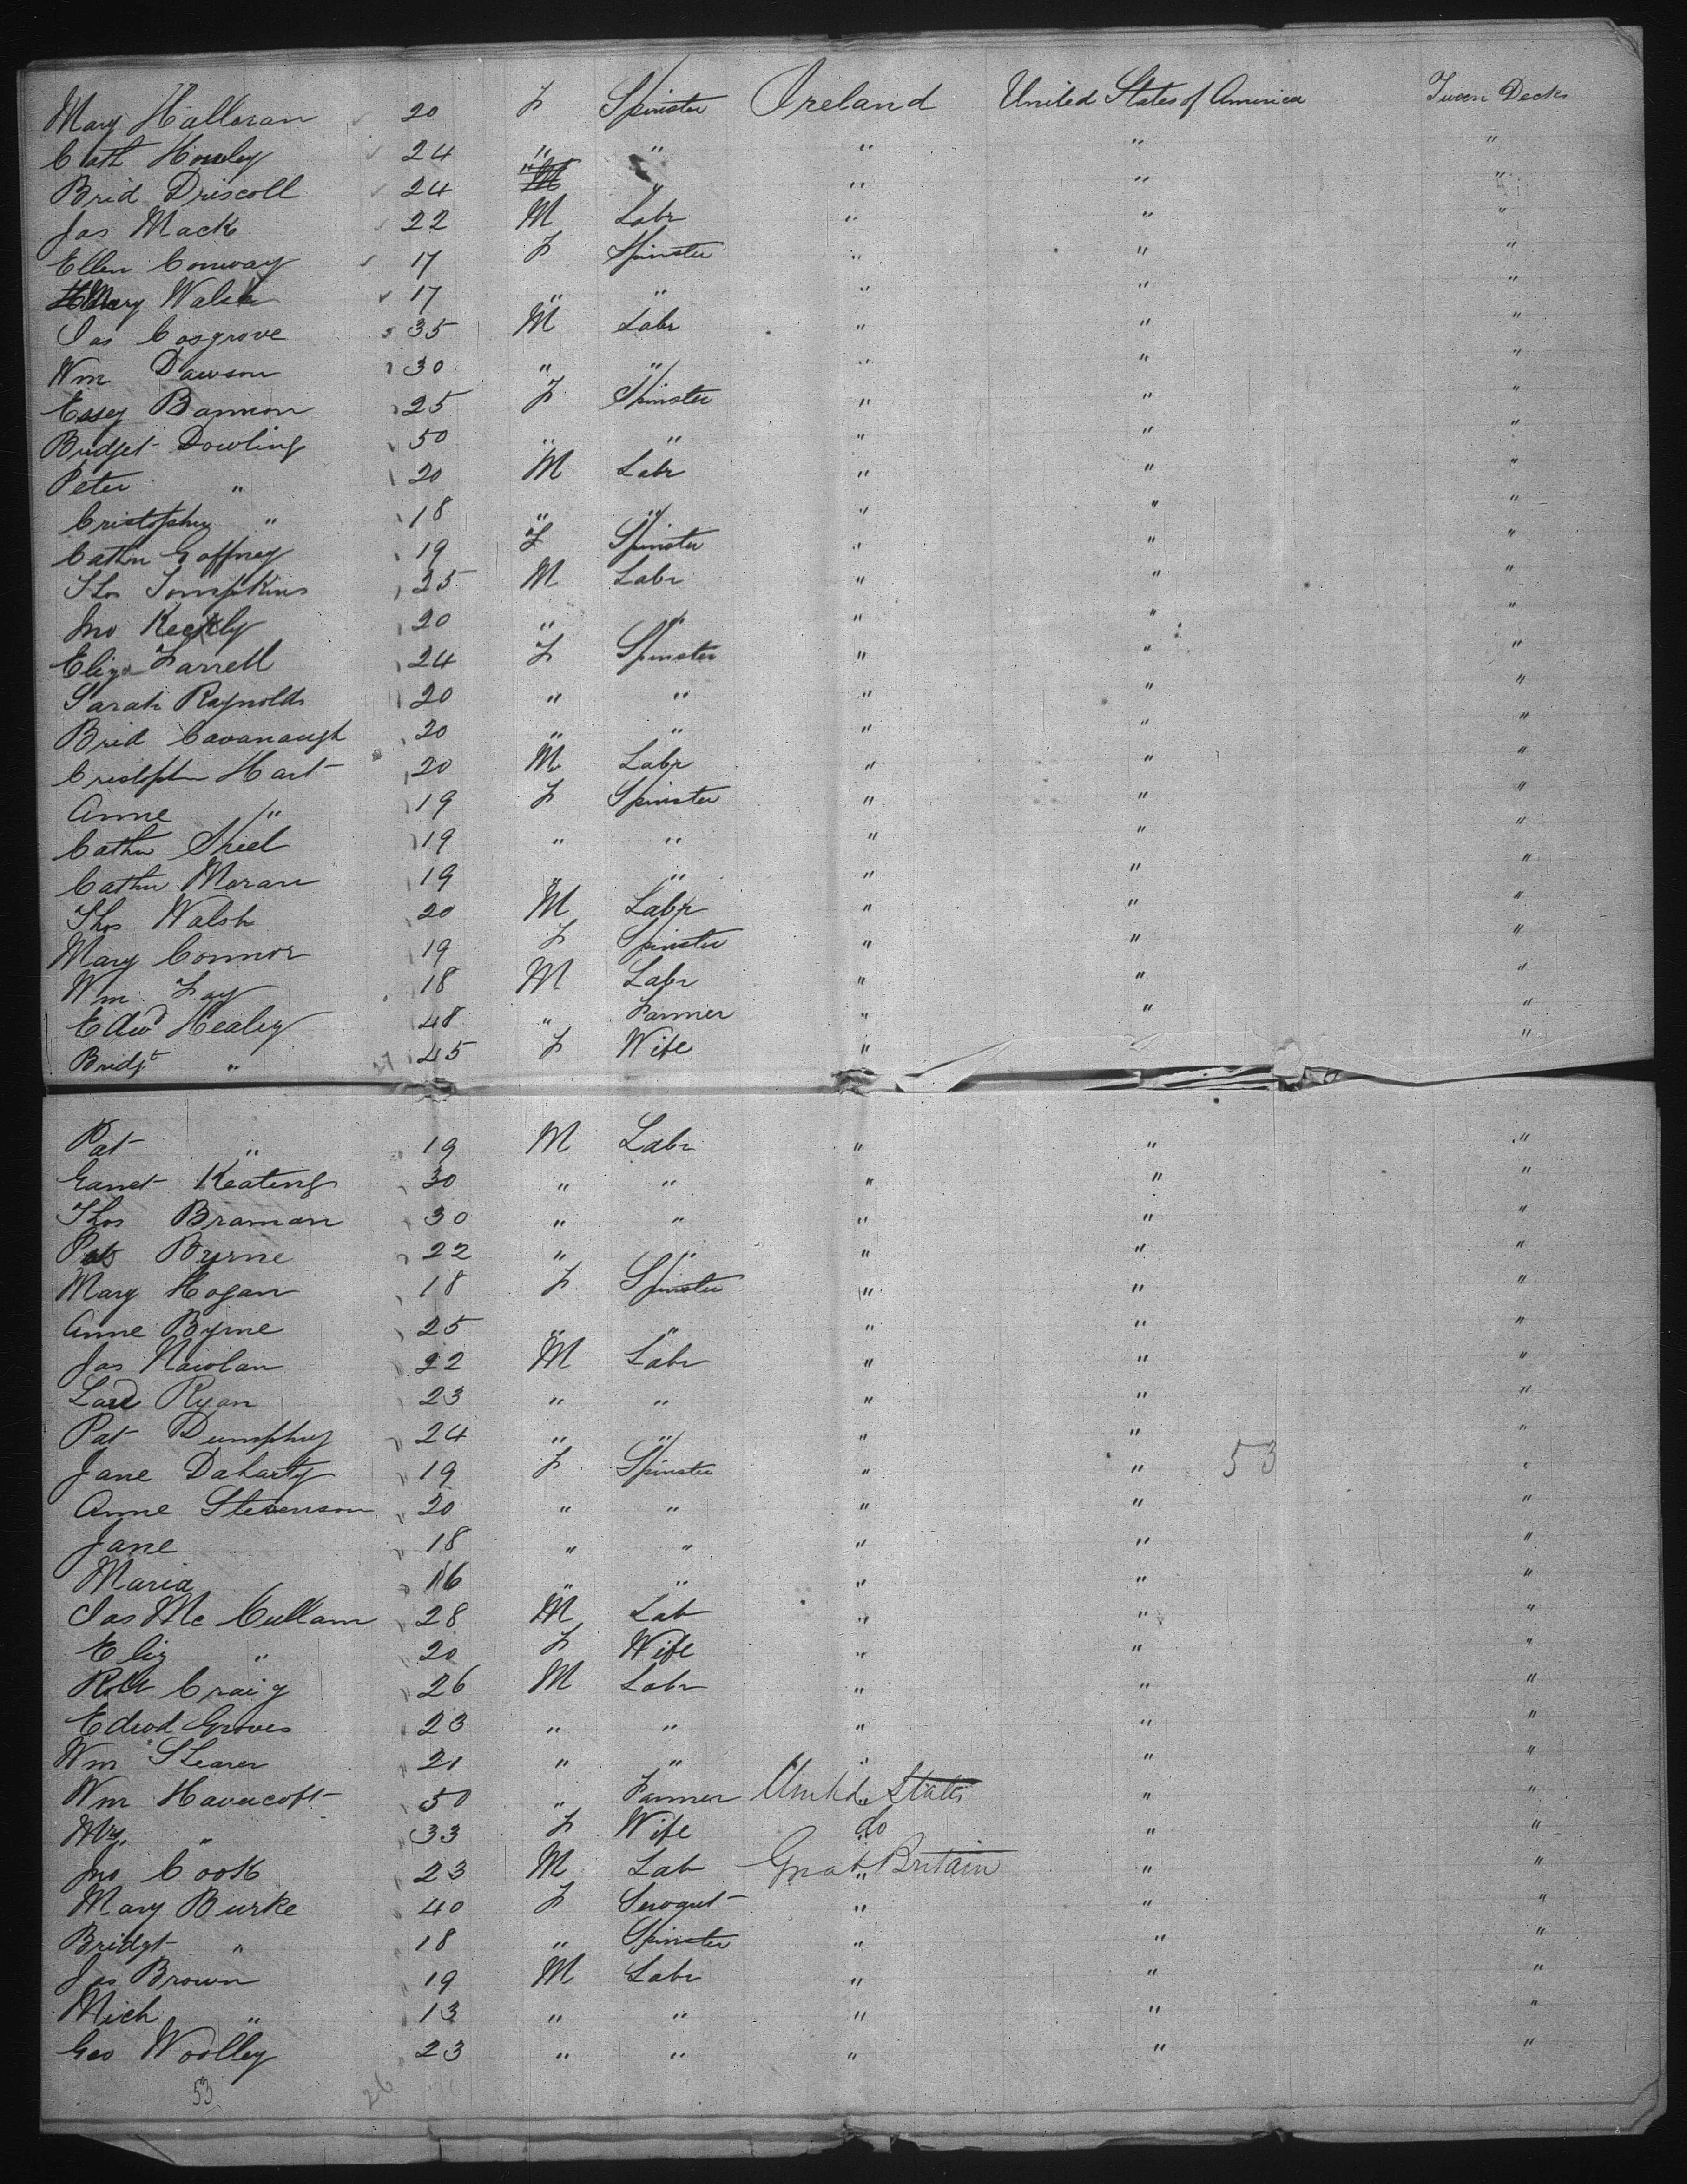 Mary Halloran 20 F Spinster Ireland United States of America Tween Decks
Cath Howley 24 " " " " "
Brid Driscoll 24 " " " " "
Jas Mack 22 M Labr " " "
Ellen Conway 17 F Spinster " " "
Mary Walsh 17 " " " " "
Jas Cosgrove 35 M Labr " " "
Wm Dawson 30 " " " " "
Essy Bannon 25 F Spinster " " "
Bridget Dowling 50 " " " " "
Peter " 20 M Labr " " "
Cristopher " 18 " " " " "
Cathn Gaffney 19 F Spinster " " "
Thos Tompkins 25 M Labr " " "
Jno 20 " " " " "
Eliza Farrell 24 F Spinster " " "
Sarah Raynolds 20 " " " " "
Brid Cavanaugh 20 " " " " "
Cristophn Hart 20 M Labr " " "
Anne " 19 F Spinster " " "
Cathn Shiel 19 " " " " "
Cathn Moran 19 " " " " "
Thos Walsh 20 M Labr " " "
Mary Connor 19 F Spinster " " "
Wm Fay 18 M Labr " " "
Edwd Healey 48 " Farmer " " "
Bridgt " 27 45 F Wife " "
Pat " 19 M Labr " " "
Keating 30 " " " " "
Thos Braman 30 " " " " "
Pat Byrne 22 " " " " "
Mary Hogan 18 F Spinster " " "
Anne Byrne 25 " " " " "
Jas Nawlan 22 M Labr " " "
Ryan 23 " " " " "
Pat Dumphy 24 " " " " "
Jane Daharty 19 F Spinster " " 53 "
Anne Stevenson 20 " " " " "
Jane 18 " " " " "
Maria 16 " " " " "
Jas Mc Cullam 28 M Lab " " "
Eliz " 20 F Wife " " "
Robt Craig 26 M Labr " " "
Edwd Groves 23 " " " " "
Wm Shearer 21 " " " " "
Wm Havercoft 50 " Farmer United States " "
Mrs. " 33 F Wife do " "
Jno Cook 23 M Lab Great Britain " "
Mary Burke 40 F Servant " " "
Bridgt " 18 " Spinster " " "
Jas Brown 19 M Labr " " "
Mich " 13 " " " " "
Geo Woolley 23 " " " " "
53 26